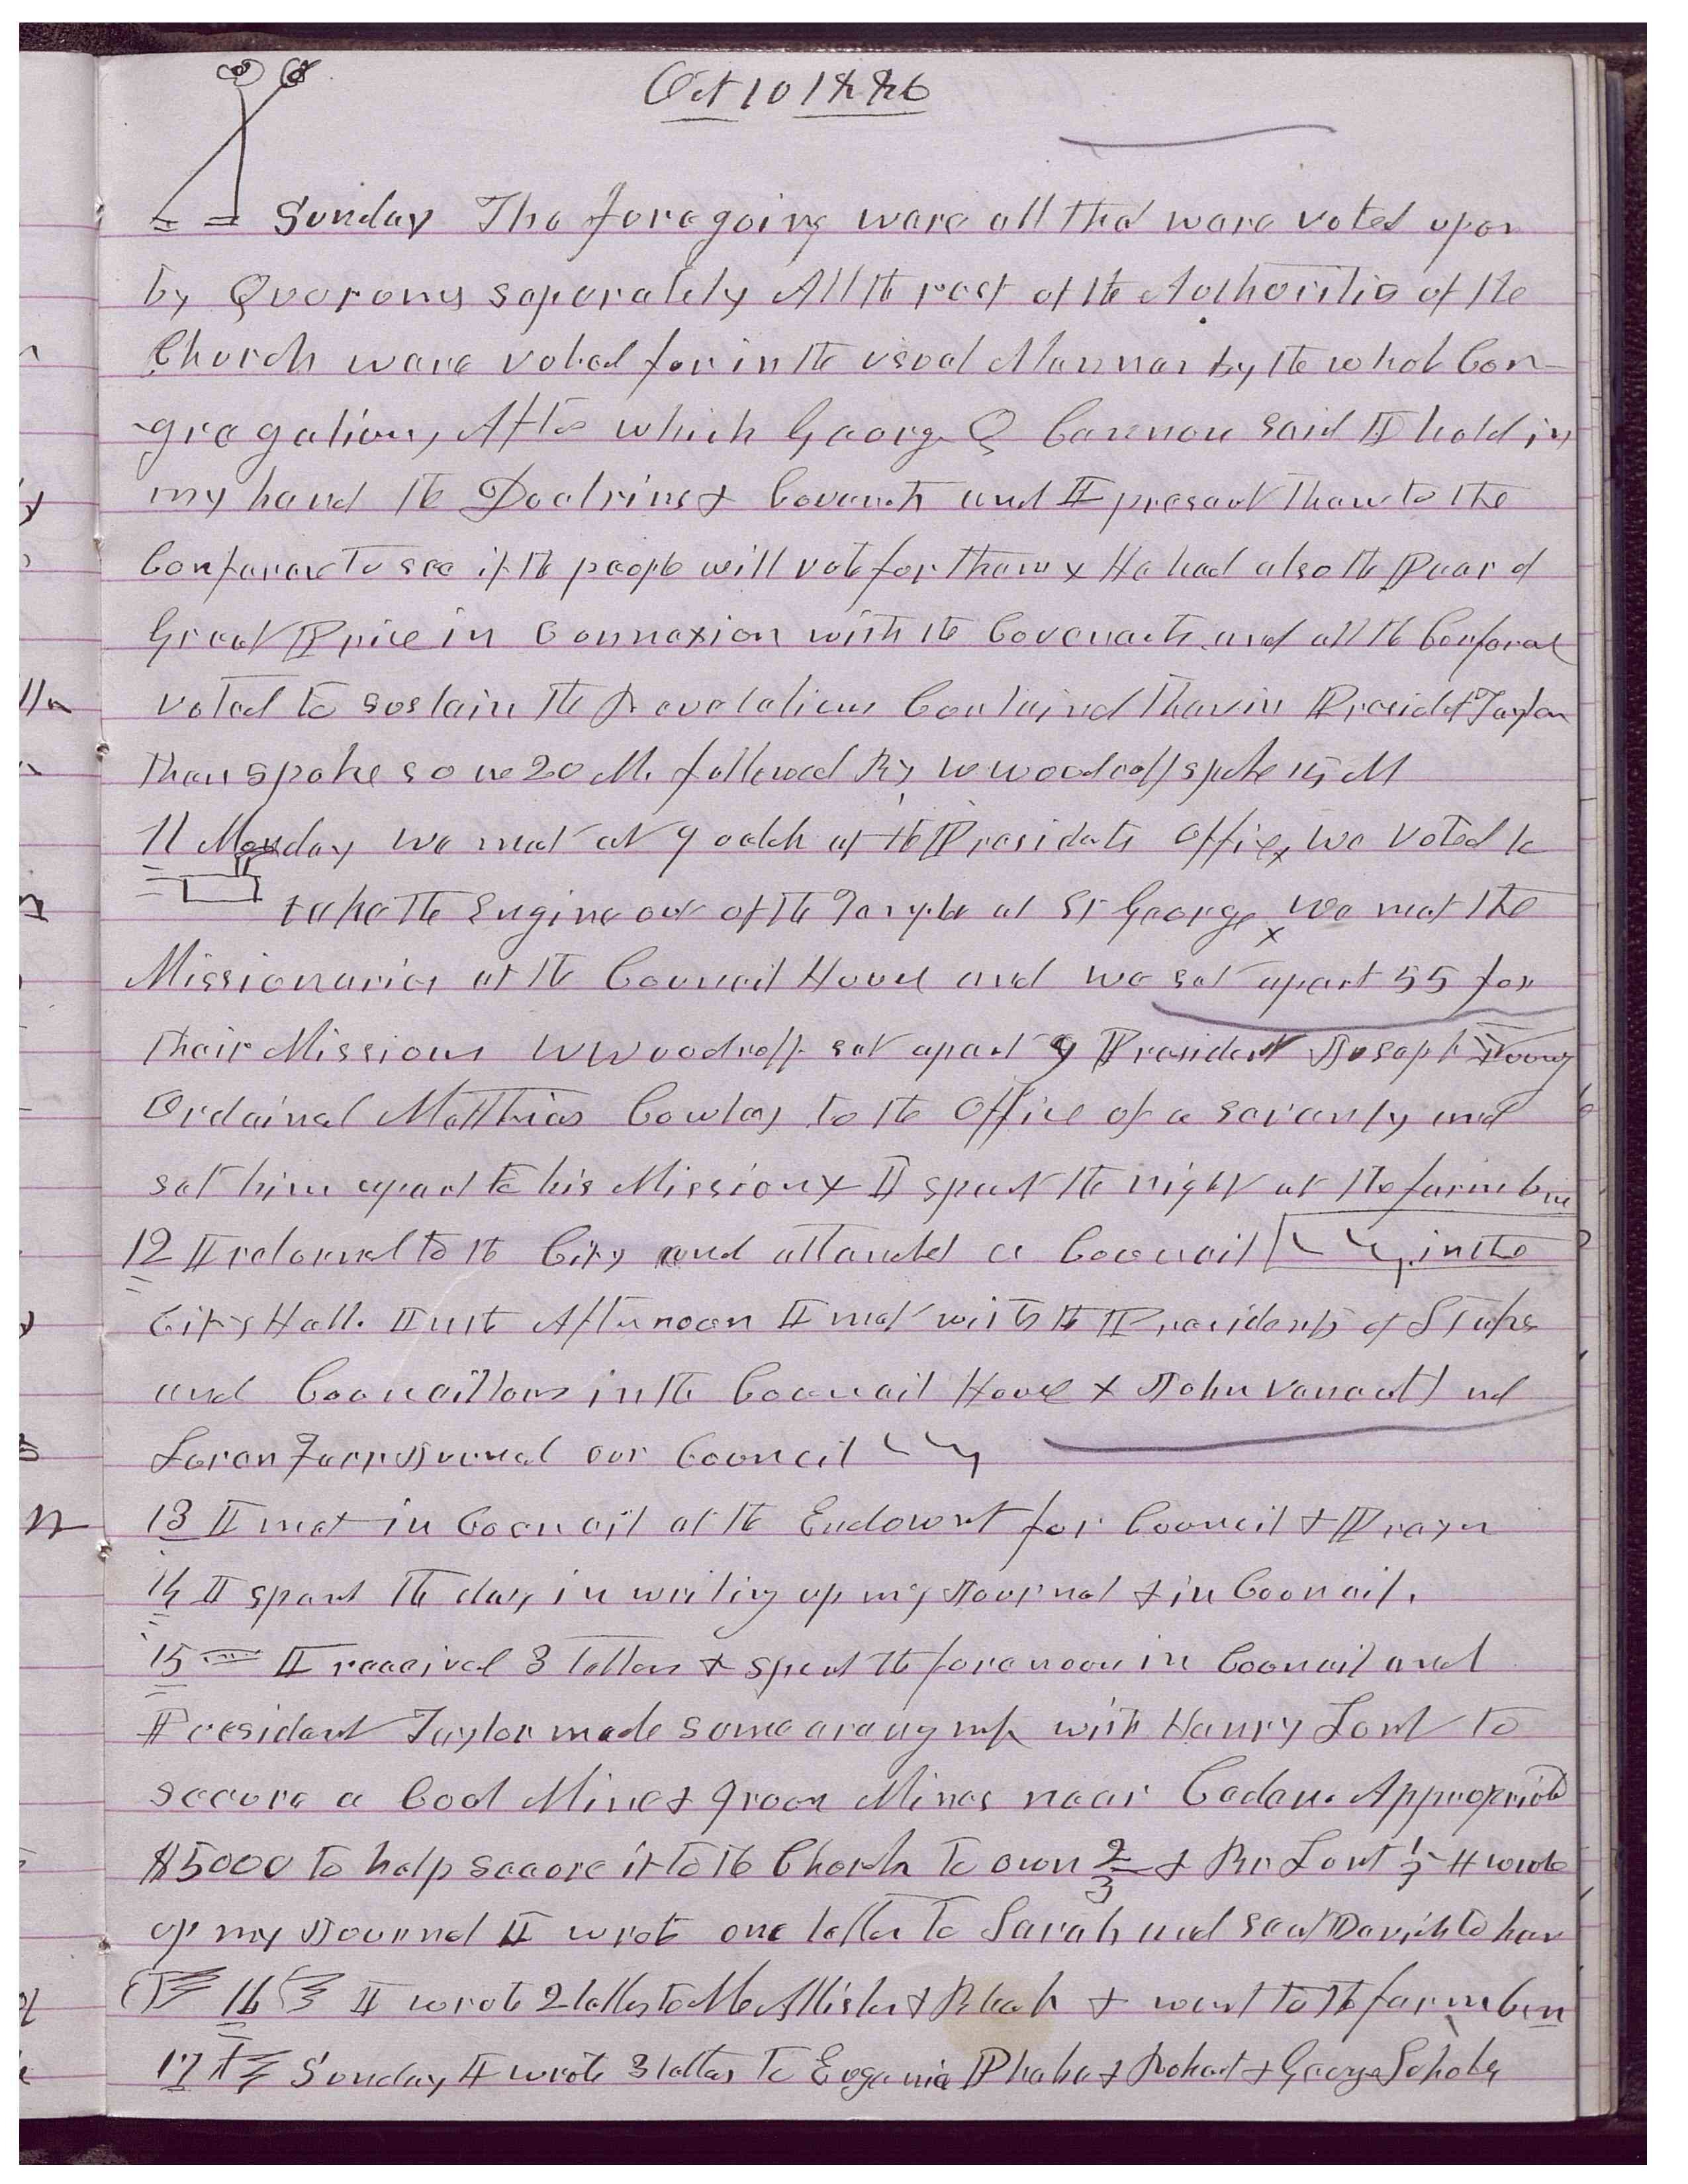 Oct 10 1880
Sunday The foregoing ware all that ware voted upon
by Quoroms seperately All the rest of the Authorities of the
Church ware voted for in the usual Mannar by the whole Con-
gregation, After which George Q Cannon said I hold in
my hand the Doctrins & Covenants and I present them to the
Conference to see if the people will vote for them x He had also the Pearl of
Great Price in Connexion with the Covenants and all the Conference
voted to sustain the Revelations Contained therein President Taylor
then spoke some 20 M. followed By W Woodruff spoke 15 M
11 Monday We met at 9 oclok at the Presidents Office x we voted to
take the Engine out of the Temple at St George x We met the
Missionaries at the Council House and we set apart 55 for
their Missions W Woodruff set apart 9 President Joseph Young
Ordained Matthias Cowley to the Office of a seventy and
set him apart to his Mission x I spent the night at the farm
12 I returned to the City and attended a Council in the
City Hall. In the Afternoon I met with the Presidents of Stake
and Councillors in the Council House x John Vancott and
Loran Farr Joined our Council
13 I met in Council at the Endowmt for Council & Prayer
14 I spent the day in writing up my Journal & in Council.
15 I received 3 letters & spent the forenoon in Council and
President Taylor made some arangmt with Henry Lunt to
secure a Coal Mine & Iron Mines near Cedar. Appropriated
$5000 to help secure it to the Church to own 2/3 & Br Lunt 1/3 I wrote
up my Journal I wrote one letter to Sarah and sent David to her
16 I wrote 2 letters to McAllister & Bleak & went to the farm
17 Sunday I wrote 3 letters to Eugenia Phebe & Robert & George Scholes